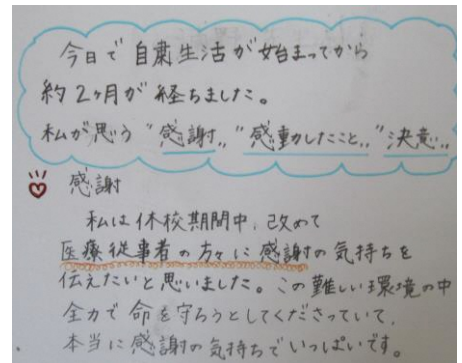 今日で自粛生活が始まってから
約2ヶ月が経ちました。
私が思う〝感謝〟〝感動したこと〟〝決意〟
感謝
私は休校期間中、改めて
医療従事者の方々に感謝の気持ちを
伝えたいと思いました。この難しい環境の中
全力で命を守ろうとしてくださっていて、
本当に感謝の気持ちでいっぱいです。